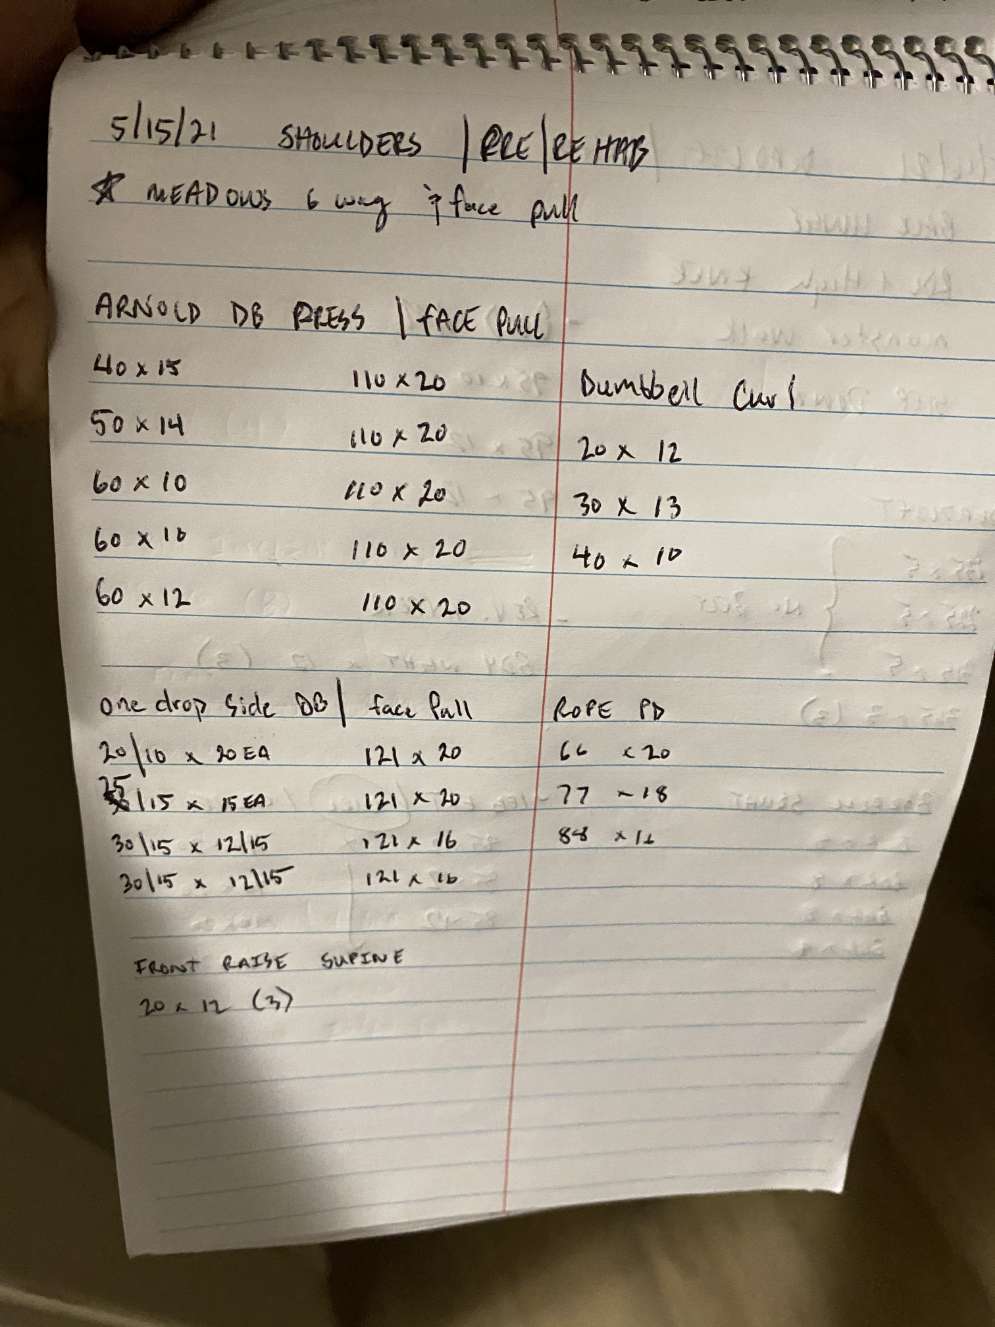 5/15/21 SHOULDERS | PRE/REHAB
☆ MEADOWS 6 way & face pull
ARNOLD DB PRESS | FACE PULL
40 x 15 110 x 20 Dumbbell Curl
50 x 14 110 x 20 20 x 12
60 x 10 110 x 20 30 x 13
60 x 10 110 x 20 40 x 10
60 x 12 110 x 20
one drop side DB | face Pull ROPE PD
20/10 x 20 EA 121 x 20 66 x 20
25/15 x 15 EA 121 x 20 77 - 18
30/15 x 12/15 121 x 16 88 x 16
30/15 x 12/15 121 x 16
FRONT RAISE SUPINE
20 x 12 (3)